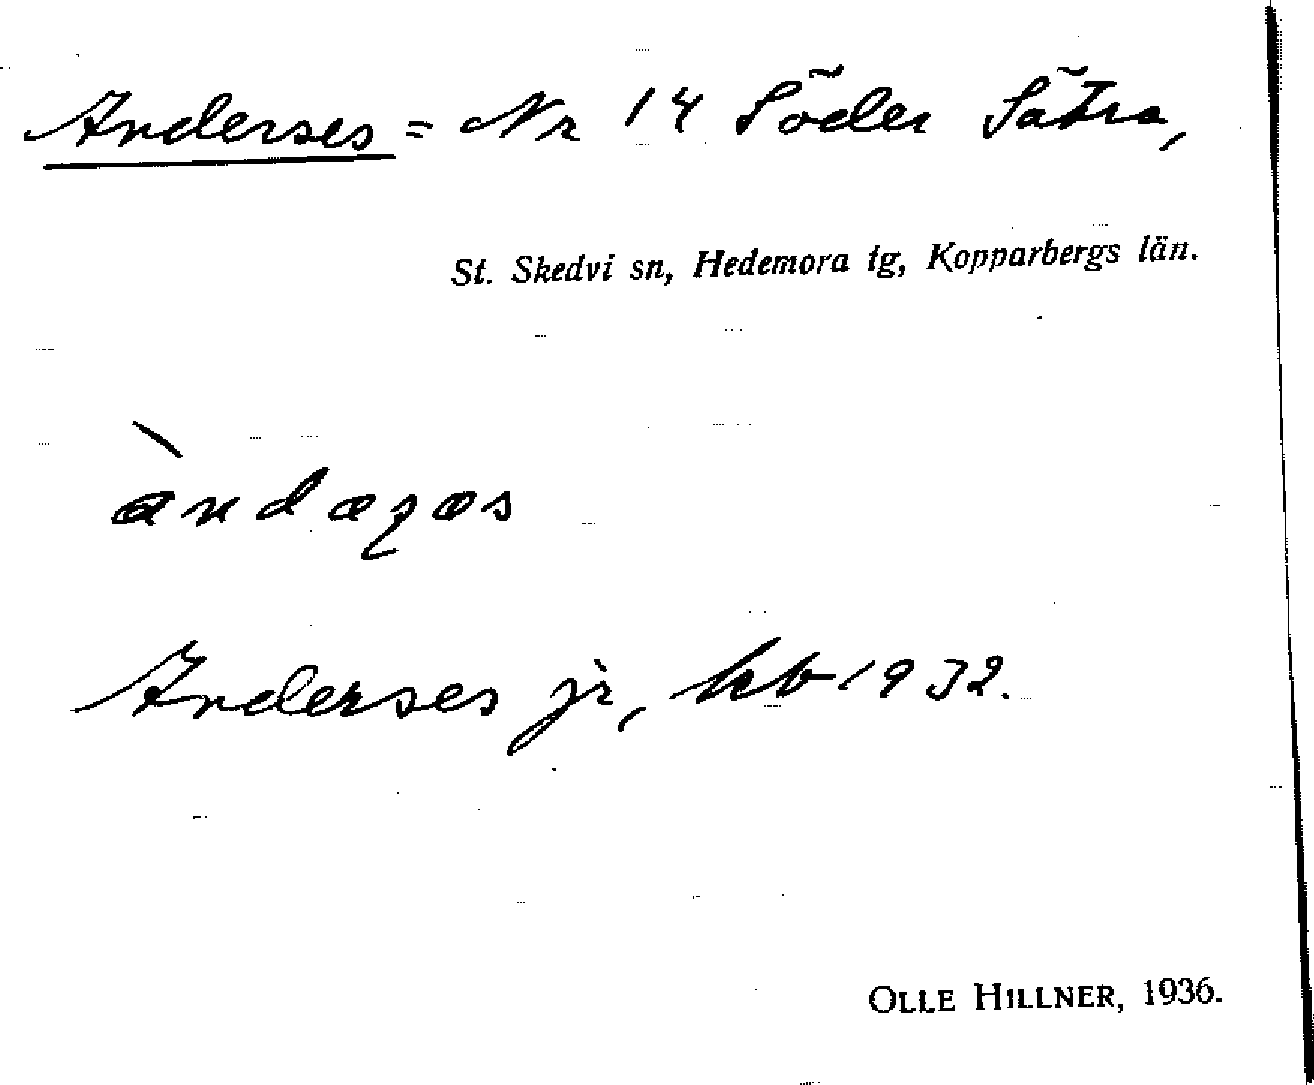 Anderses = Nr 14 Söder Sätra,
St. Skedvi sn, Hedemora tg, Kopparbergs län.
àndæȥæs
Anderses jr, kb 1932.
OLLE HILLNER, 1936.